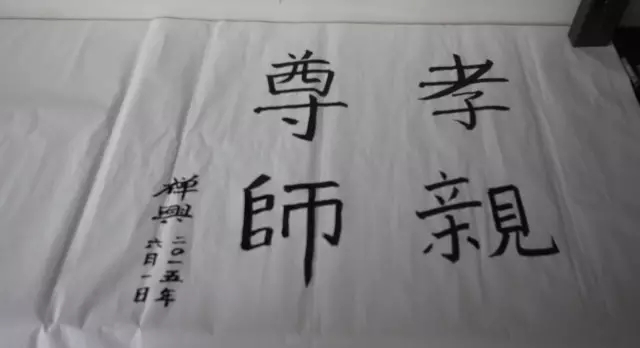 孝親
尊師
禅興
二〇一五年
六月一日